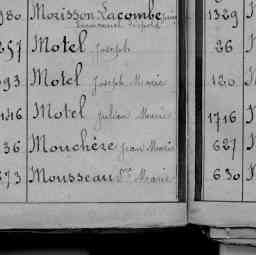 980 Morisson Lacombe 1329
257 Motel Joseph 26
693 Motel Joseph Marie 120
146 Motel Julien Marie 1716
36 Mouchère Jean Marie 627
673 Mousseau Marie 630